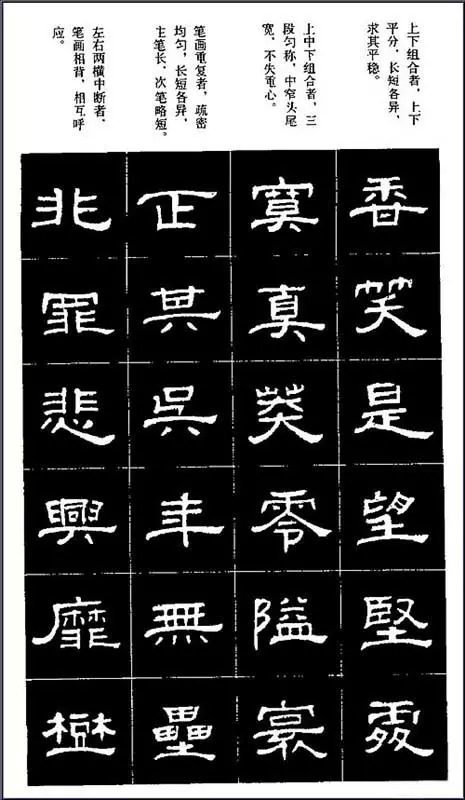 上下组合者，上下
平分，长短各异，
求其平稳。
上中下组合者，三
段匀称，中窄头尾
宽，不失重心。
笔画重复者，疏密
均匀，长短各异，
主笔长，次笔略短。
左右两横中断者，
笔画相背，相互呼
应。
香笑是望堅
真零隘
正其吳年無壘
非罪悲興靡